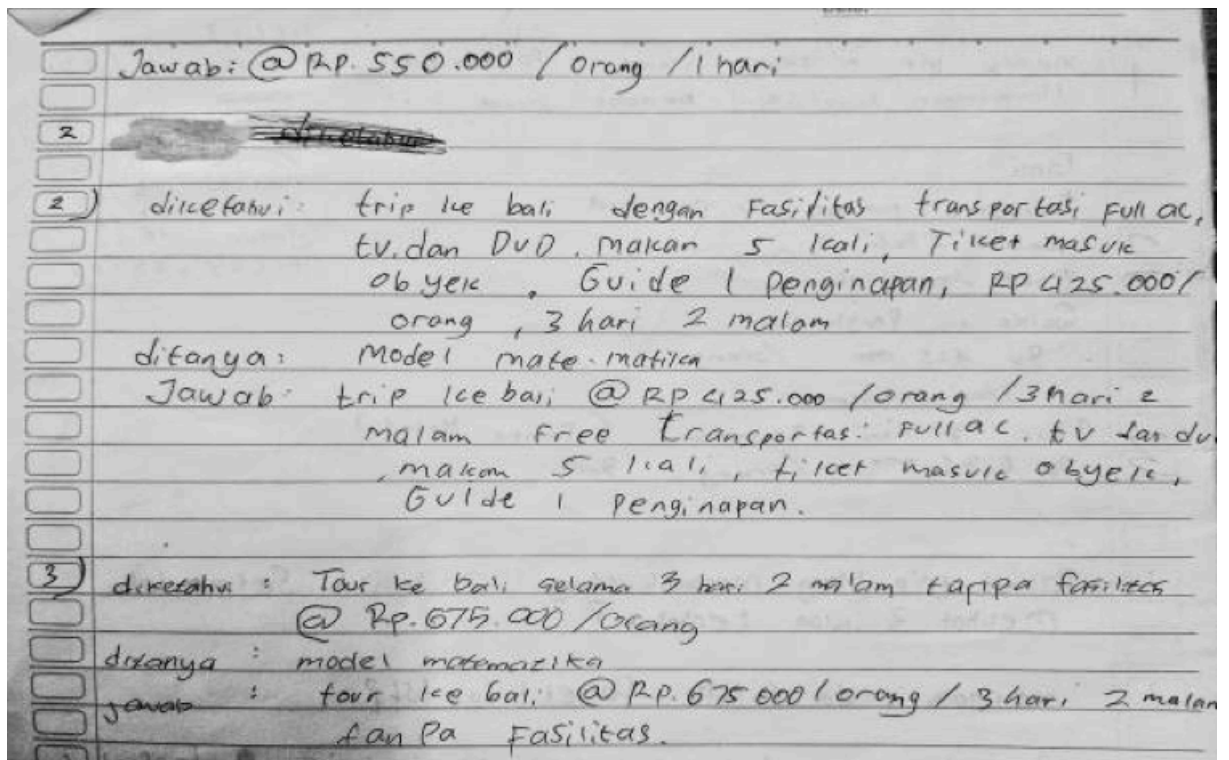 Jawab: @ Rp. 550.000 / orang / 1 hari
2
2) diketahui: trip ke bali dengan Fasilitas transportasi Full ac,
tv. dan DVD. makan 5 kali, Tiket masuk
obyek, Guide 1 penginapan, RP 425.000/
orang, 3 hari 2 malam
ditanya: Model mate-matika
Jawab: trip ke bali @ RP 425.000 /orang /3 hari 2
malam Free transportasi Full ac. tv dan dv
, makan 5 kali, tiket masuk obyek,
Guide 1 penginapan.
3) diketahui : Tour ke bali selama 3 hari 2 malam tanpa fasilitas
@ Rp. 675.000 / orang
ditanya : model matematika
jawab : tour ke bali @ Rp. 675 000 / orang / 3 hari 2 malam
tanpa Fasilitas.